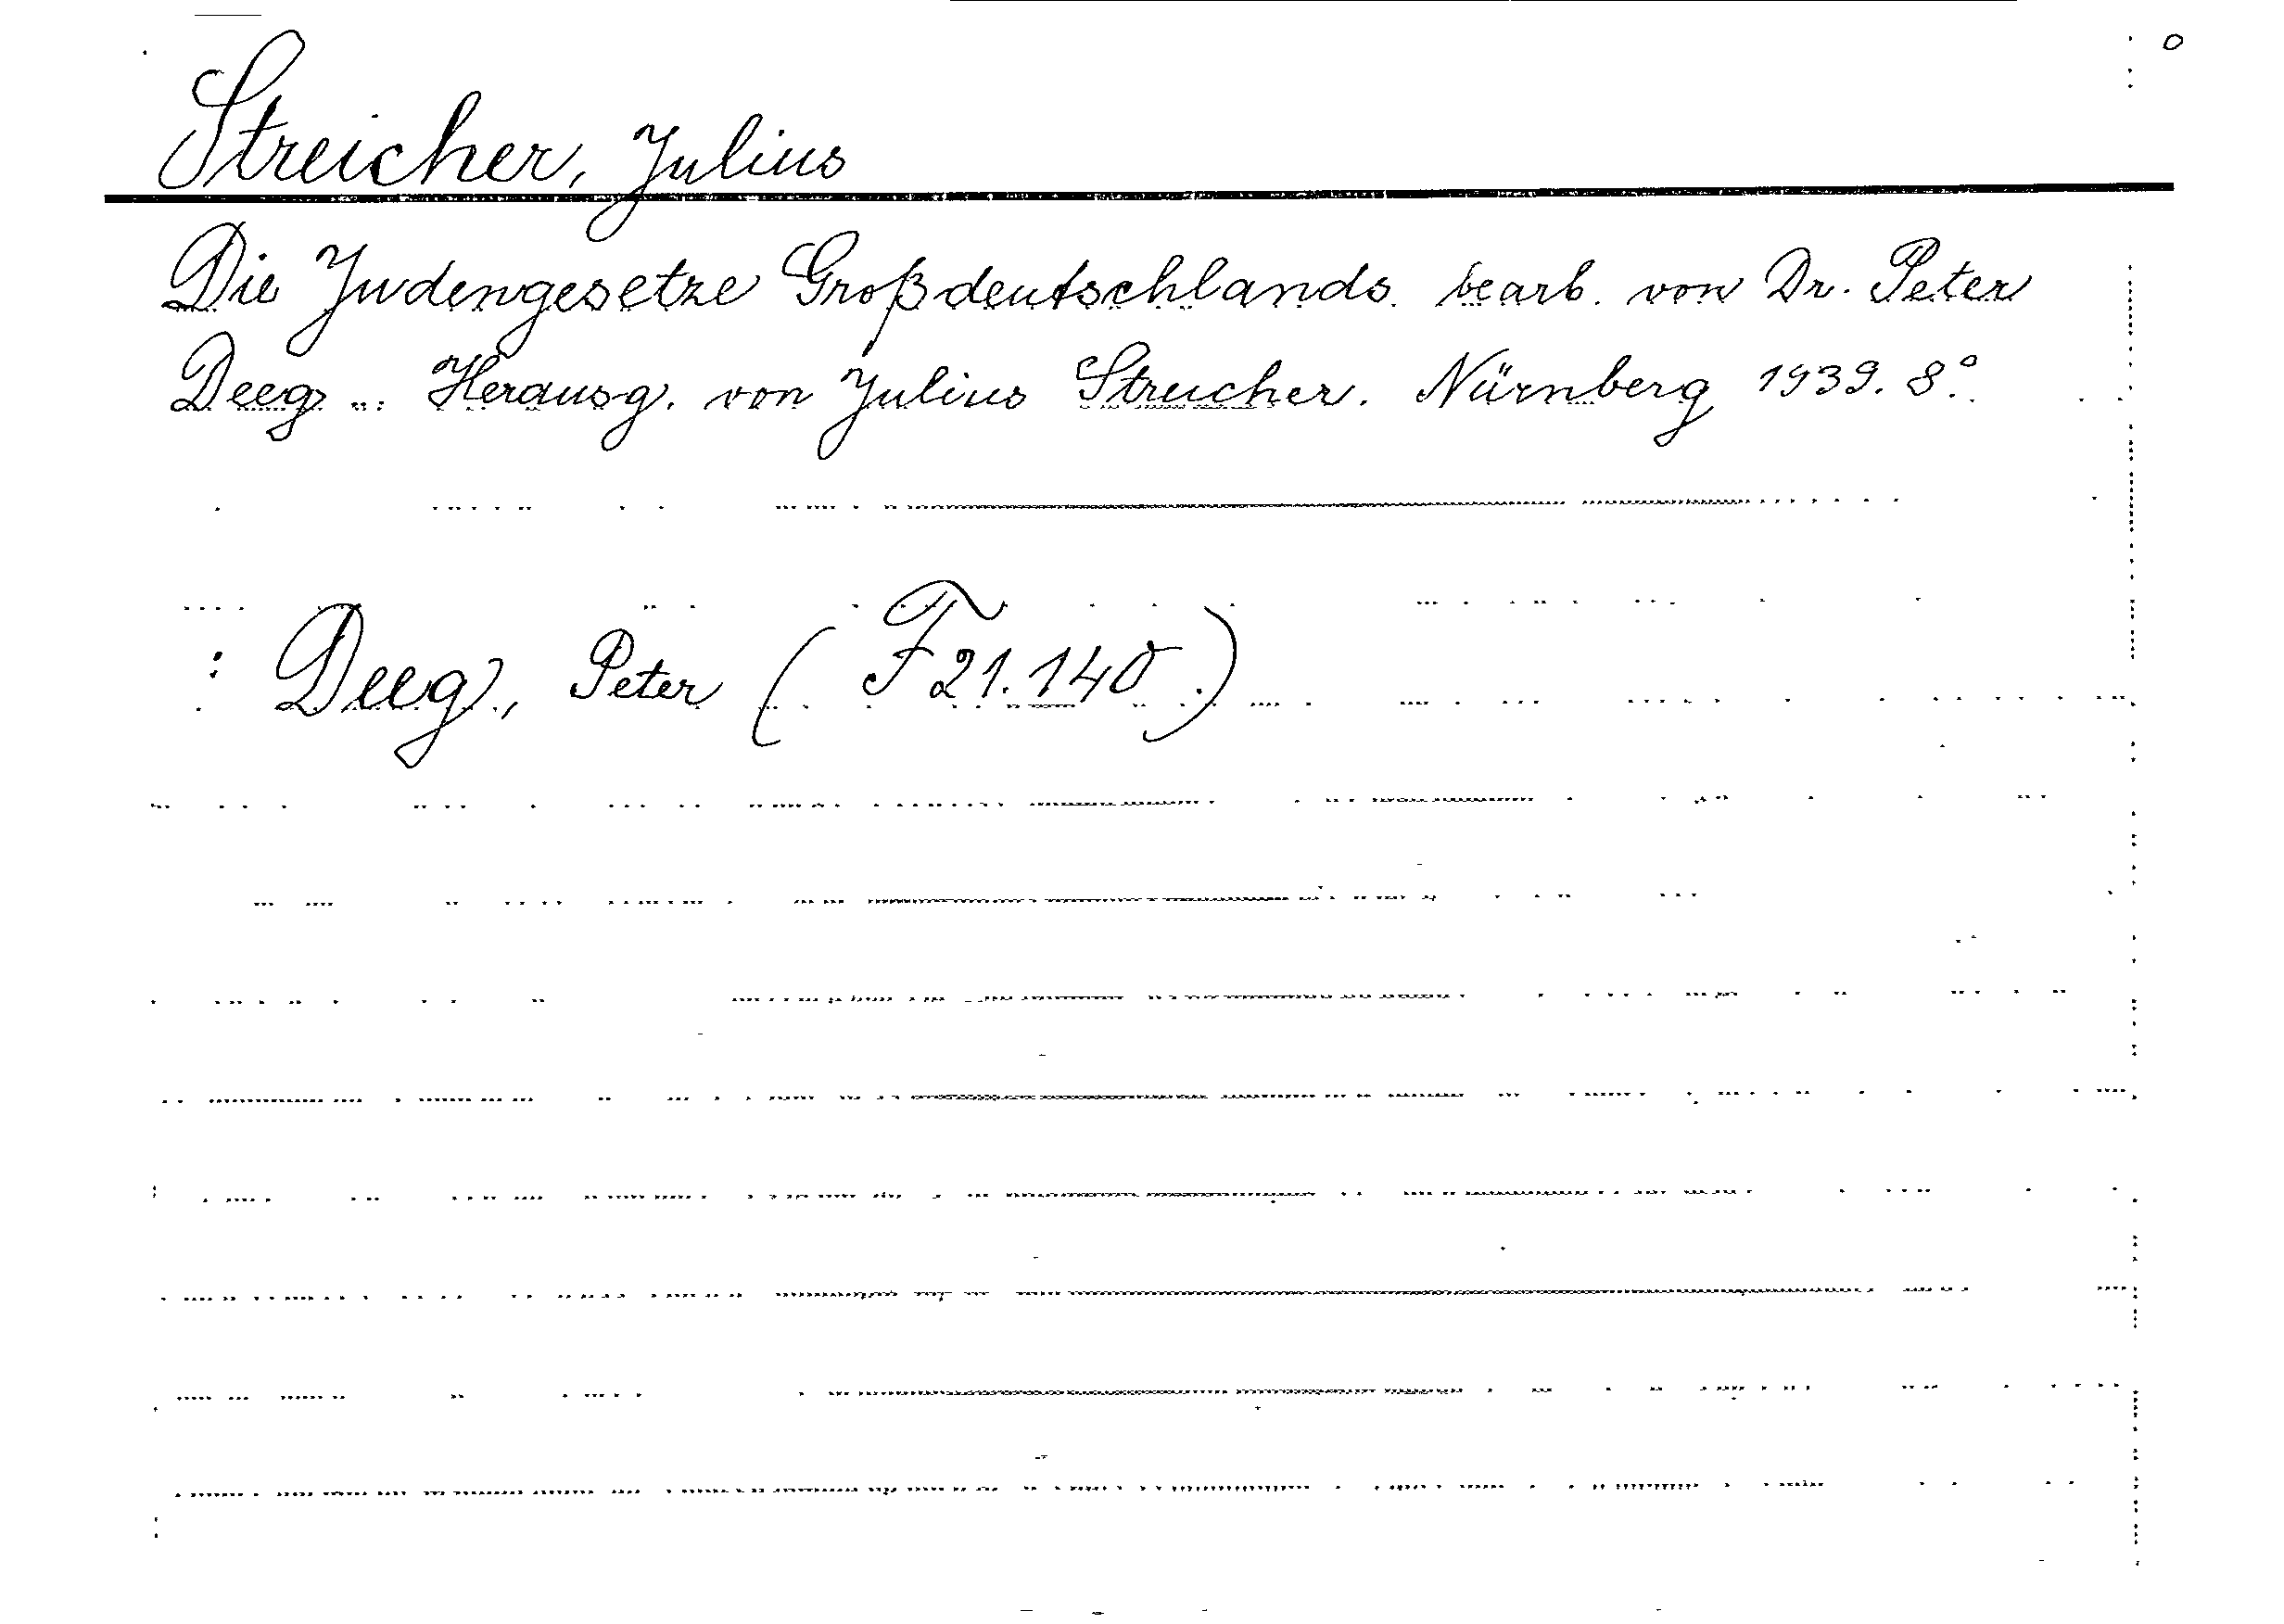 Streicher, Julius
Die Judengesetze Großdeutschlands. bearb. von Dr. Peter
Deeg ... Herausg. von Julius Streicher. Nürnberg 1939. 8°.
: Deeg, Peter ( F 21.140 )